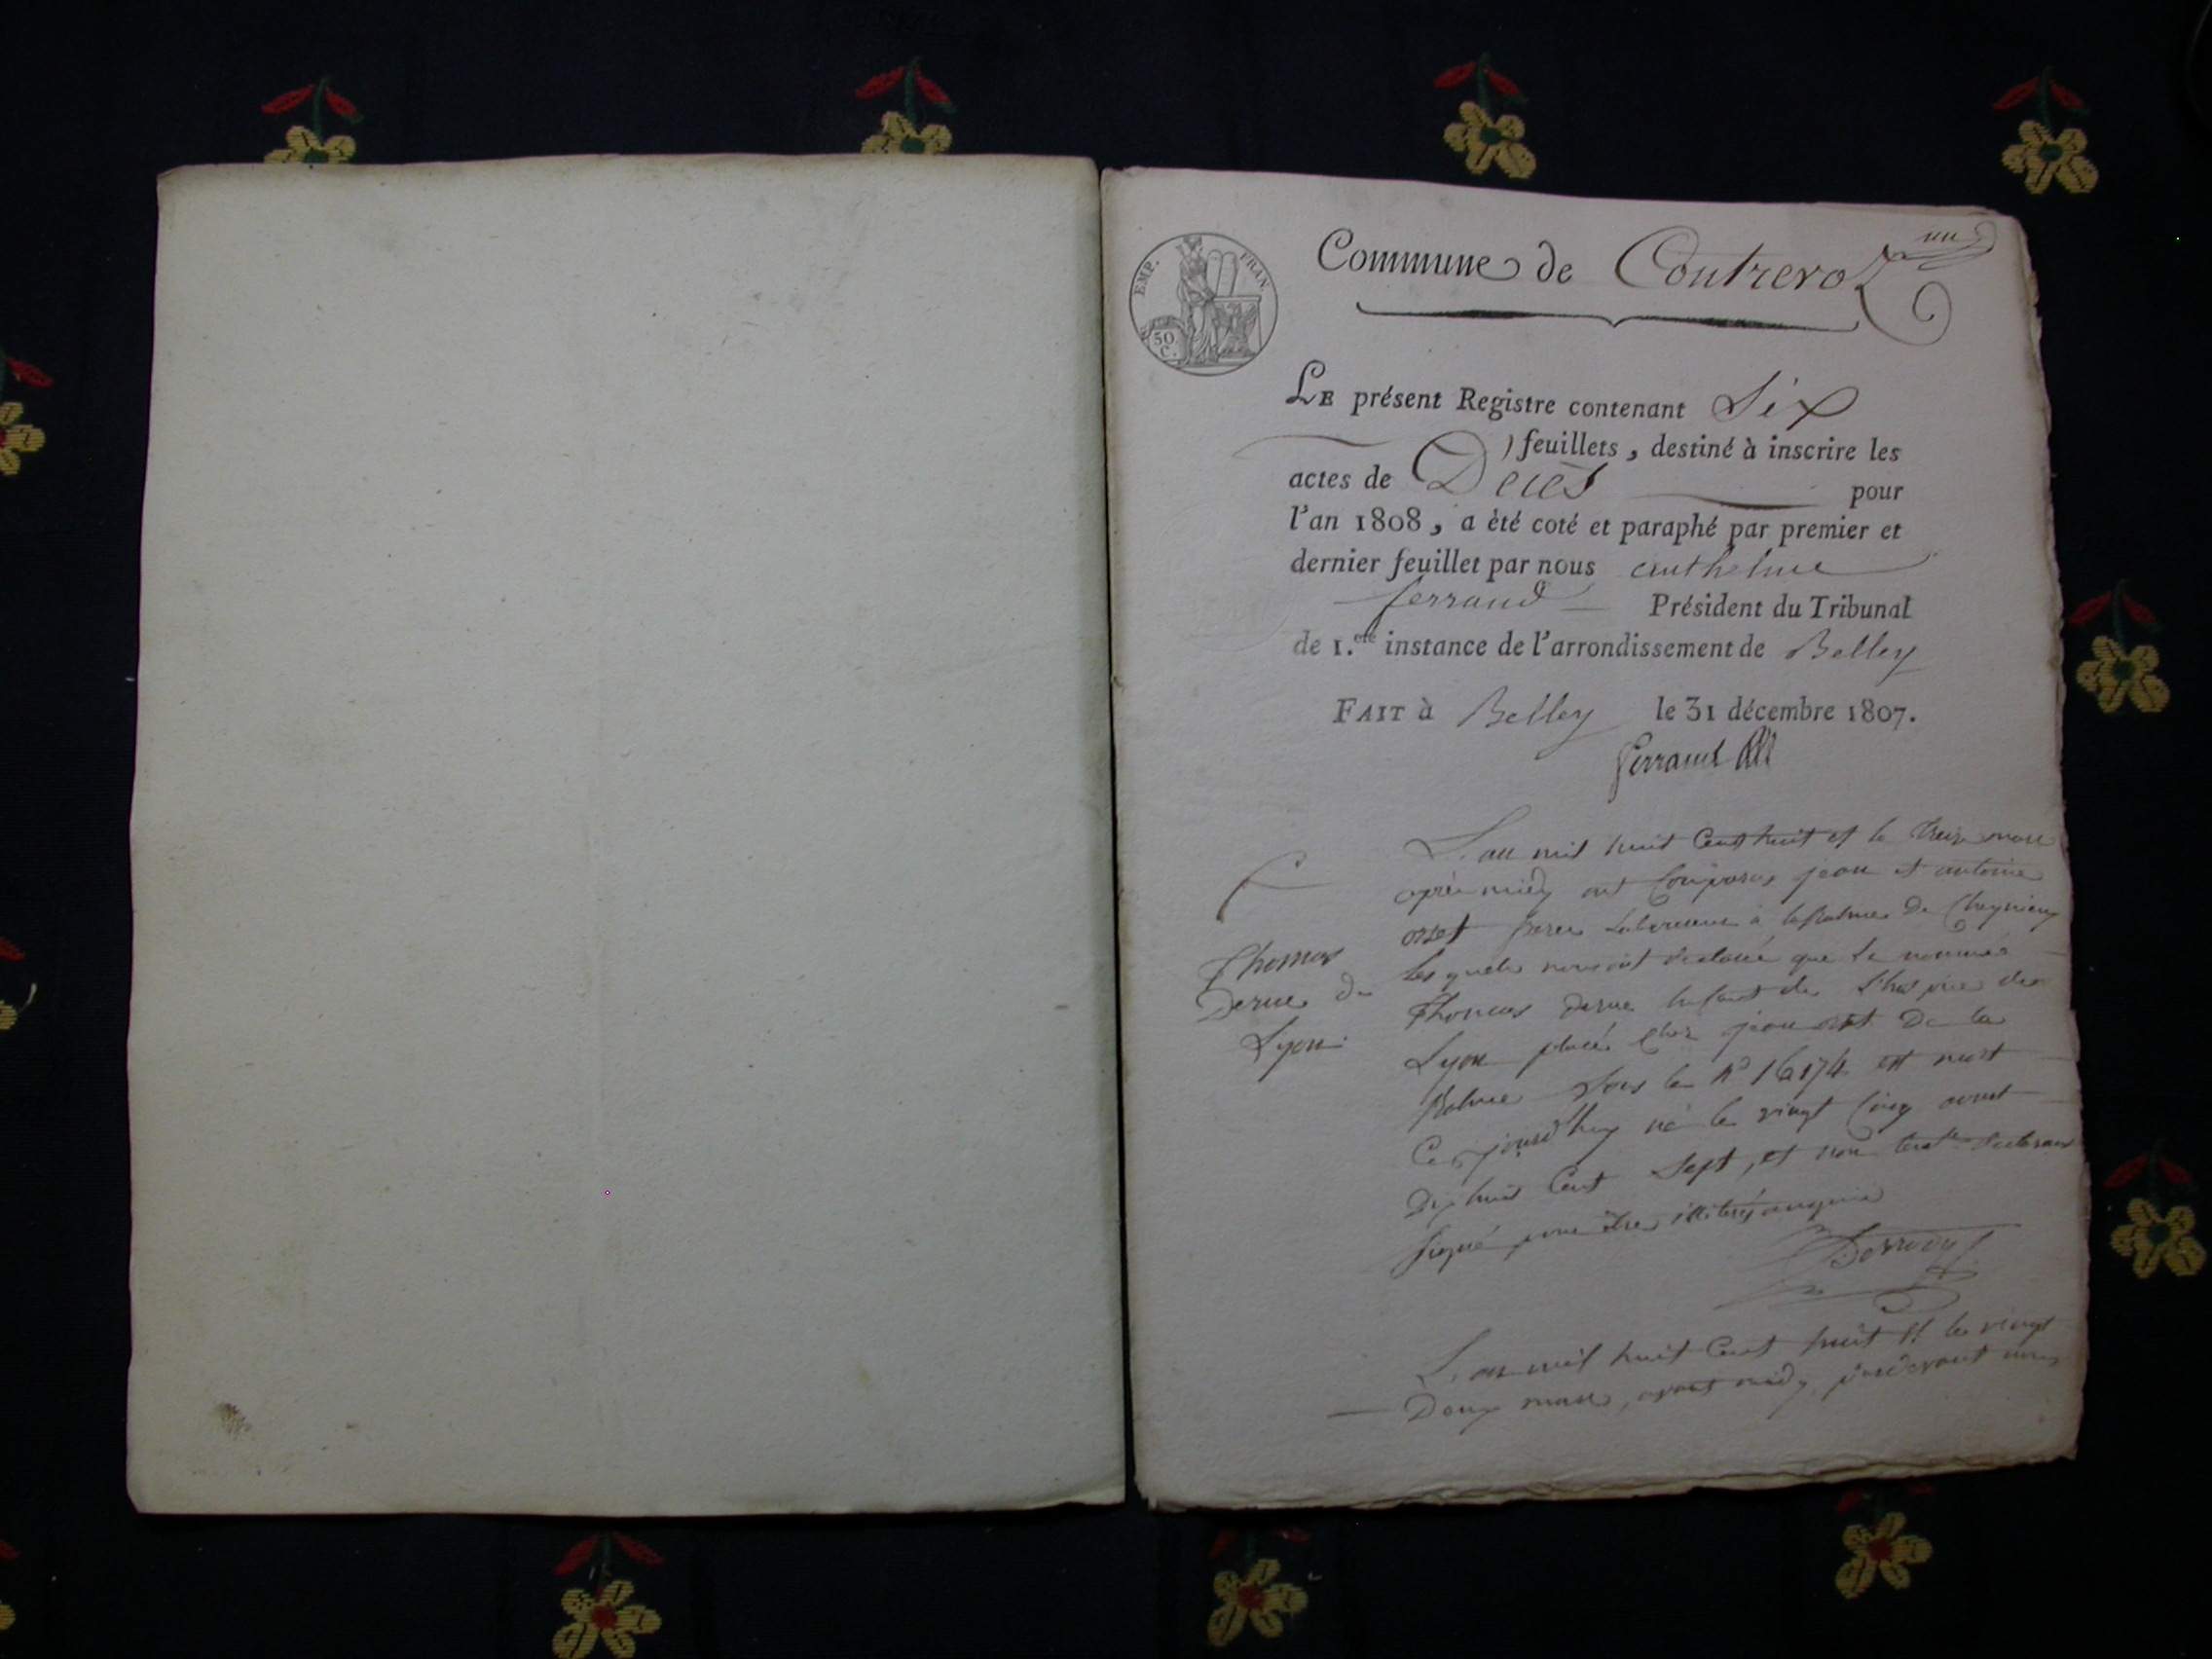 un
Commune de Contrevoz
EMP. FRAN.
50 C.
LE présent Registre contenant Six
feuillets, destiné à inscrire les
actes de Décès pour
l'an 1808, a èté coté et paraphé par premier et
dernier feuillet par nous anthelme
ferrand Président du Tribunal
de 1.ere instance de l'arrondissement de Belley
FAIT à Belley le 31 décembre 1807.
Ferrand
Thomas
Derue de
Lyon.
L'an mil huit Cent huit et le treize mars
après midy ont Comparus jean et antoine
orset freres Laboureurs à la Balme De
les quels nous ont declaré que le nommé
Thomas Derue Enfant de L'hospice de
Lyon placé Chez jean orset De la
Balme Sous le N° 16174 est mort
Ce jourd'huy né le vingt Cinq
Dix huit Cent Sept, et n'ont
Signé pour être illiterés
L'an mil huit Cent huit et le vingt
Deux mars, avant midy, pardevant nous